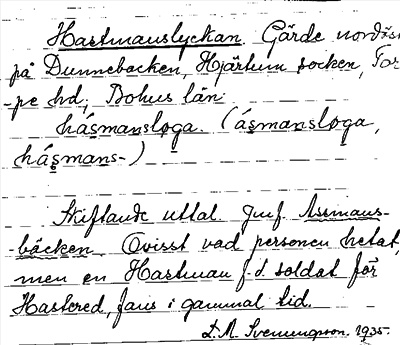 Hartmanslyckan. Gärde nordöst
på Dunnebacken, Hjärtum socken, Tor-
-pe hd, Bohus län.
háşmansløga. (áşmansløga,
háşmans-)
Skiftande uttal. Jmf. Assmans-
-bäcken. Ovisst vad personen hetat,
men en Hartman f.d. soldat för
Hastered, fans i gammal tid.
L.M. Svenungson. 1935.